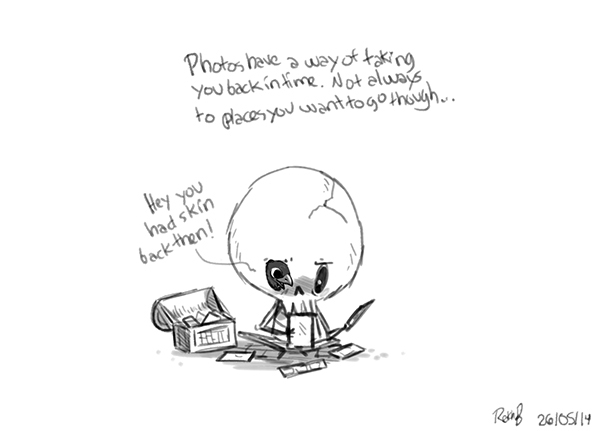 Photos have a way of taking
you back in time. Not always
to places you want to go though...
Hey you
had skin
back then!
26/05/14